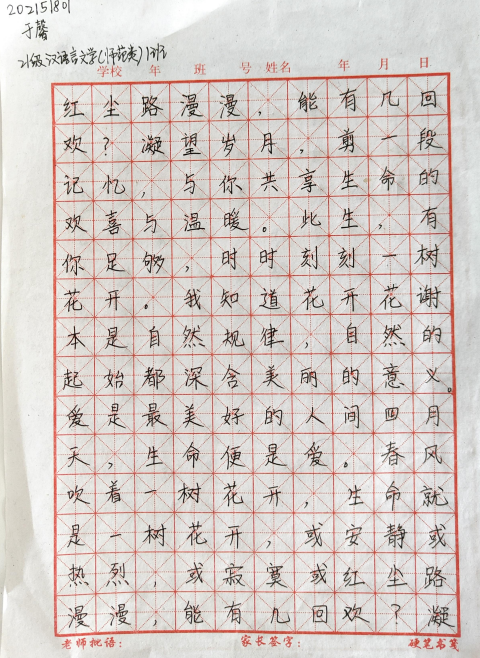 202151801
于馨
21级汉语言文学(师范类)1班
学校 年 班 号 姓名 年 月 日
红尘路漫漫，能有几回
欢？凝望岁月，剪一段
记忆，与你共享生命的
欢喜与温暖。此生，有
你足够，时时刻刻一树
花开。我知道花开花谢
本是自然规律，自然的
起始都深含美丽的意义。
爱是最美好的人间四月
天，生命便是爱。春风
吹着一树花开，生命就
是一树花开，或安静或
热烈，或寂寞或红尘路
漫漫，能有几回欢？凝
老师批语： 家长签字： 硬笔书笺